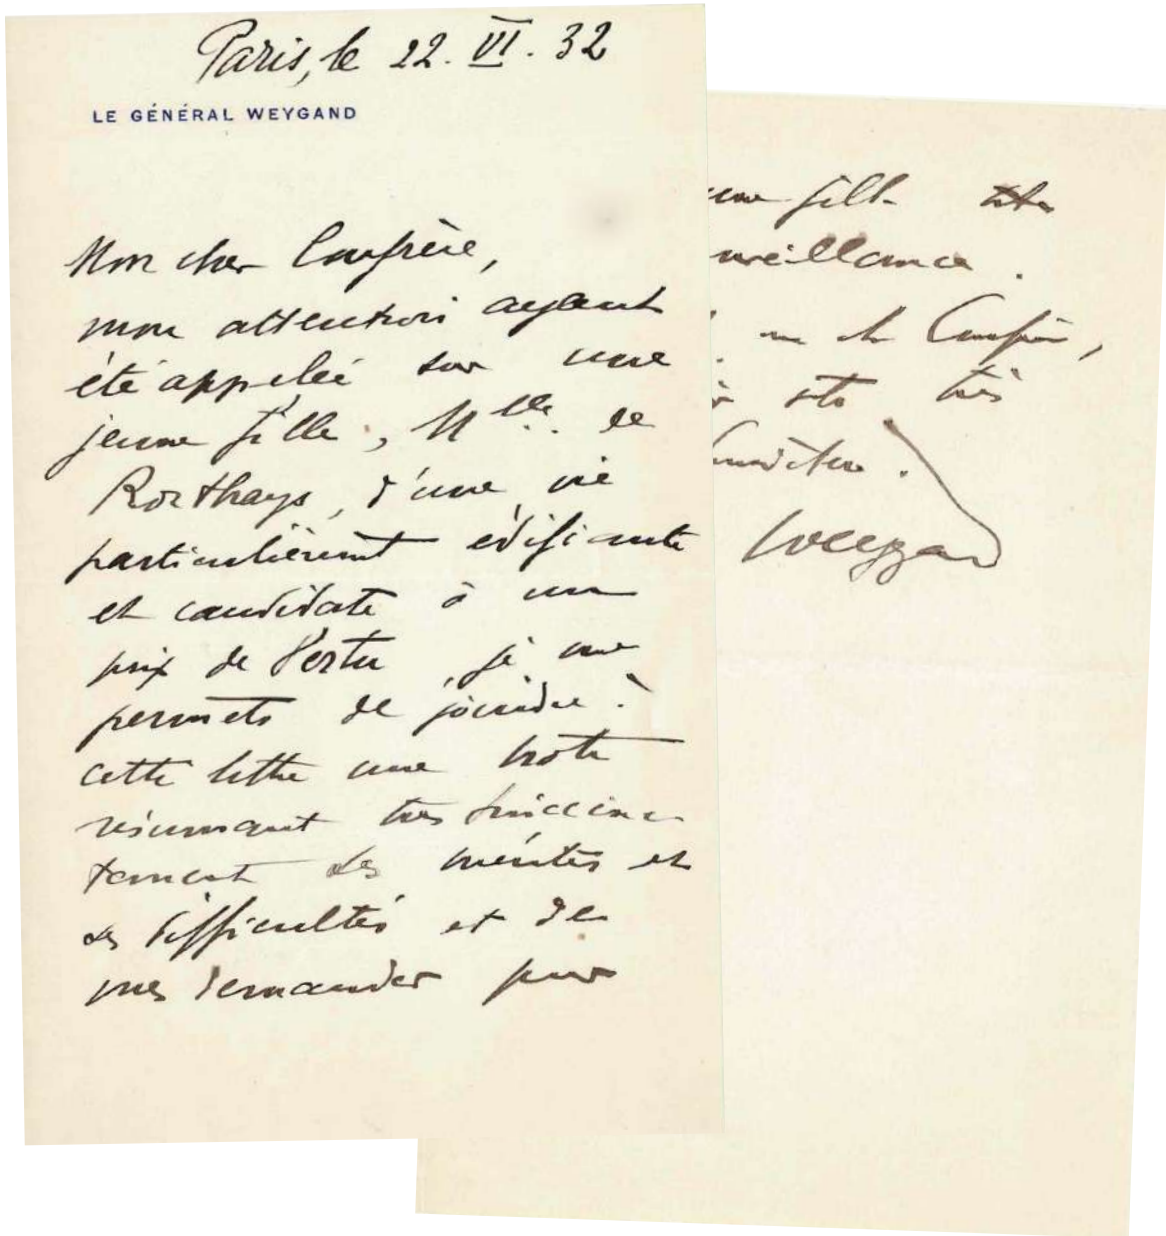 Paris, le 22. VI. 32
LE GÉNÉRAL WEYGAND
Mon cher Confrère,
mon attention ayant
été appelée sur une
jeune fille, Mlle. de
Rorthays, d'une vie
particulièrement édifiante
et candidate à un
prix de Vertu, je me
permets de joindre à
cette lettre une note
résumant très succinc-
tement ses mérites et
ses difficultés et de
vous demander pour
fille toute
veillance.
mon cher Confrère,
votre très
Weygand